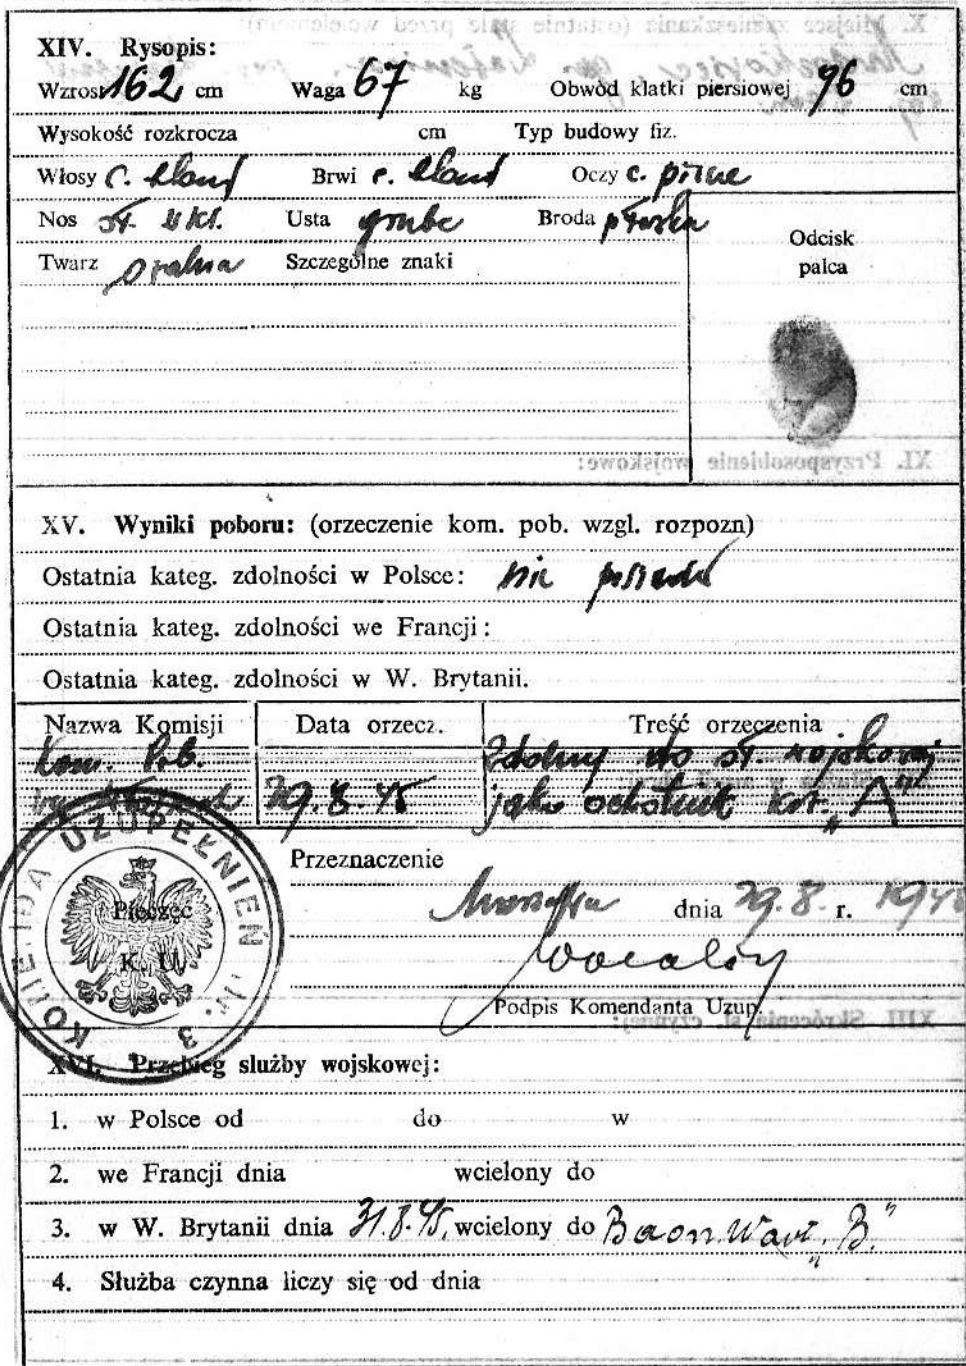 XIV. Rysopis:
Wzrost 162 cm Waga 67 kg Obwód klatki piersiowej 96 cm
Wysokość rozkrocza cm Typ budowy fiz.
Włosy c. blond Brwi c. blond Oczy c. piwne
Nos Usta grube Broda płaska
Twarz owalna Szczególne znaki
Odcisk
palca
XI. Przysposobienie wojskowe:
XV. Wyniki poboru: (orzeczenie kom. pob. wzgl. rozpozn)
Ostatnia kateg. zdolności w Polsce: nie posiada
Ostatnia kateg. zdolności we Francji:
Ostatnia kateg. zdolności w W. Brytanii.
Nazwa Komisji Data orzecz. Treść orzeczenia
Kom. Pob. Zdolny do sł. wojskowej
29.8.45 jako ochotnik kat. „A"
KOMENDA UZUPEŁNIEŃ Nr. 3
Pieczęć
K. U.
Przeznaczenie
dnia 29.8. r. 1945
Podpis Komendanta Uzup.
XIII. Skrócenia sł. czynnej:
XVI. Przebieg służby wojskowej:
1. w Polsce od do w
2. we Francji dnia wcielony do
3. w W. Brytanii dnia 31.8.45, wcielony do Baon. Wart. „B."
4. Służba czynna liczy się od dnia